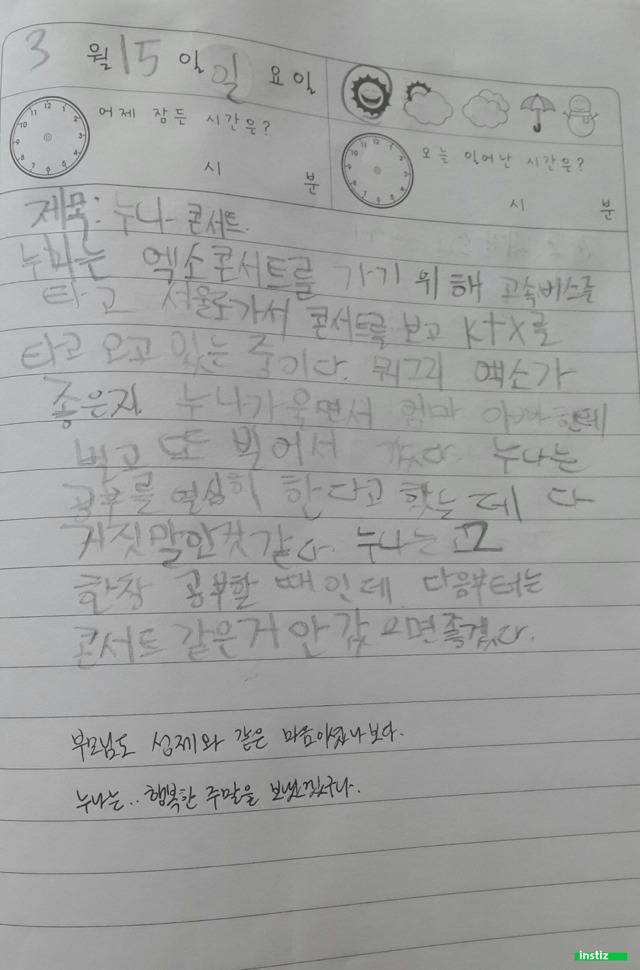 3 월 15 일 일 요일
어제 잠든 시간은?
시 분
오늘 일어난 시간은?
시 분
제목: 누나 콘서트
누나는 엑소콘서트를 가기 위해 고속버스를
타고 서울로가서 콘서트를 보고 ktx를
타고 오고 있는 중이다. 뭐그리 엑소가
좋은지 누나가울면서 엄마 아빠한테
빌고 또 빌어서 갔다. 누나는
공부를 열심히 한다고 했는데 다
거짓말인것같다. 누나는 고2
한창 공부할 때인데 다음부터는
콘서트 같은거 안 갔으면좋겠다.
부모님도 성제와 같은 마음이셨나보다.
누나는.. 행복한 주말을 보냈겠구나.
instiz